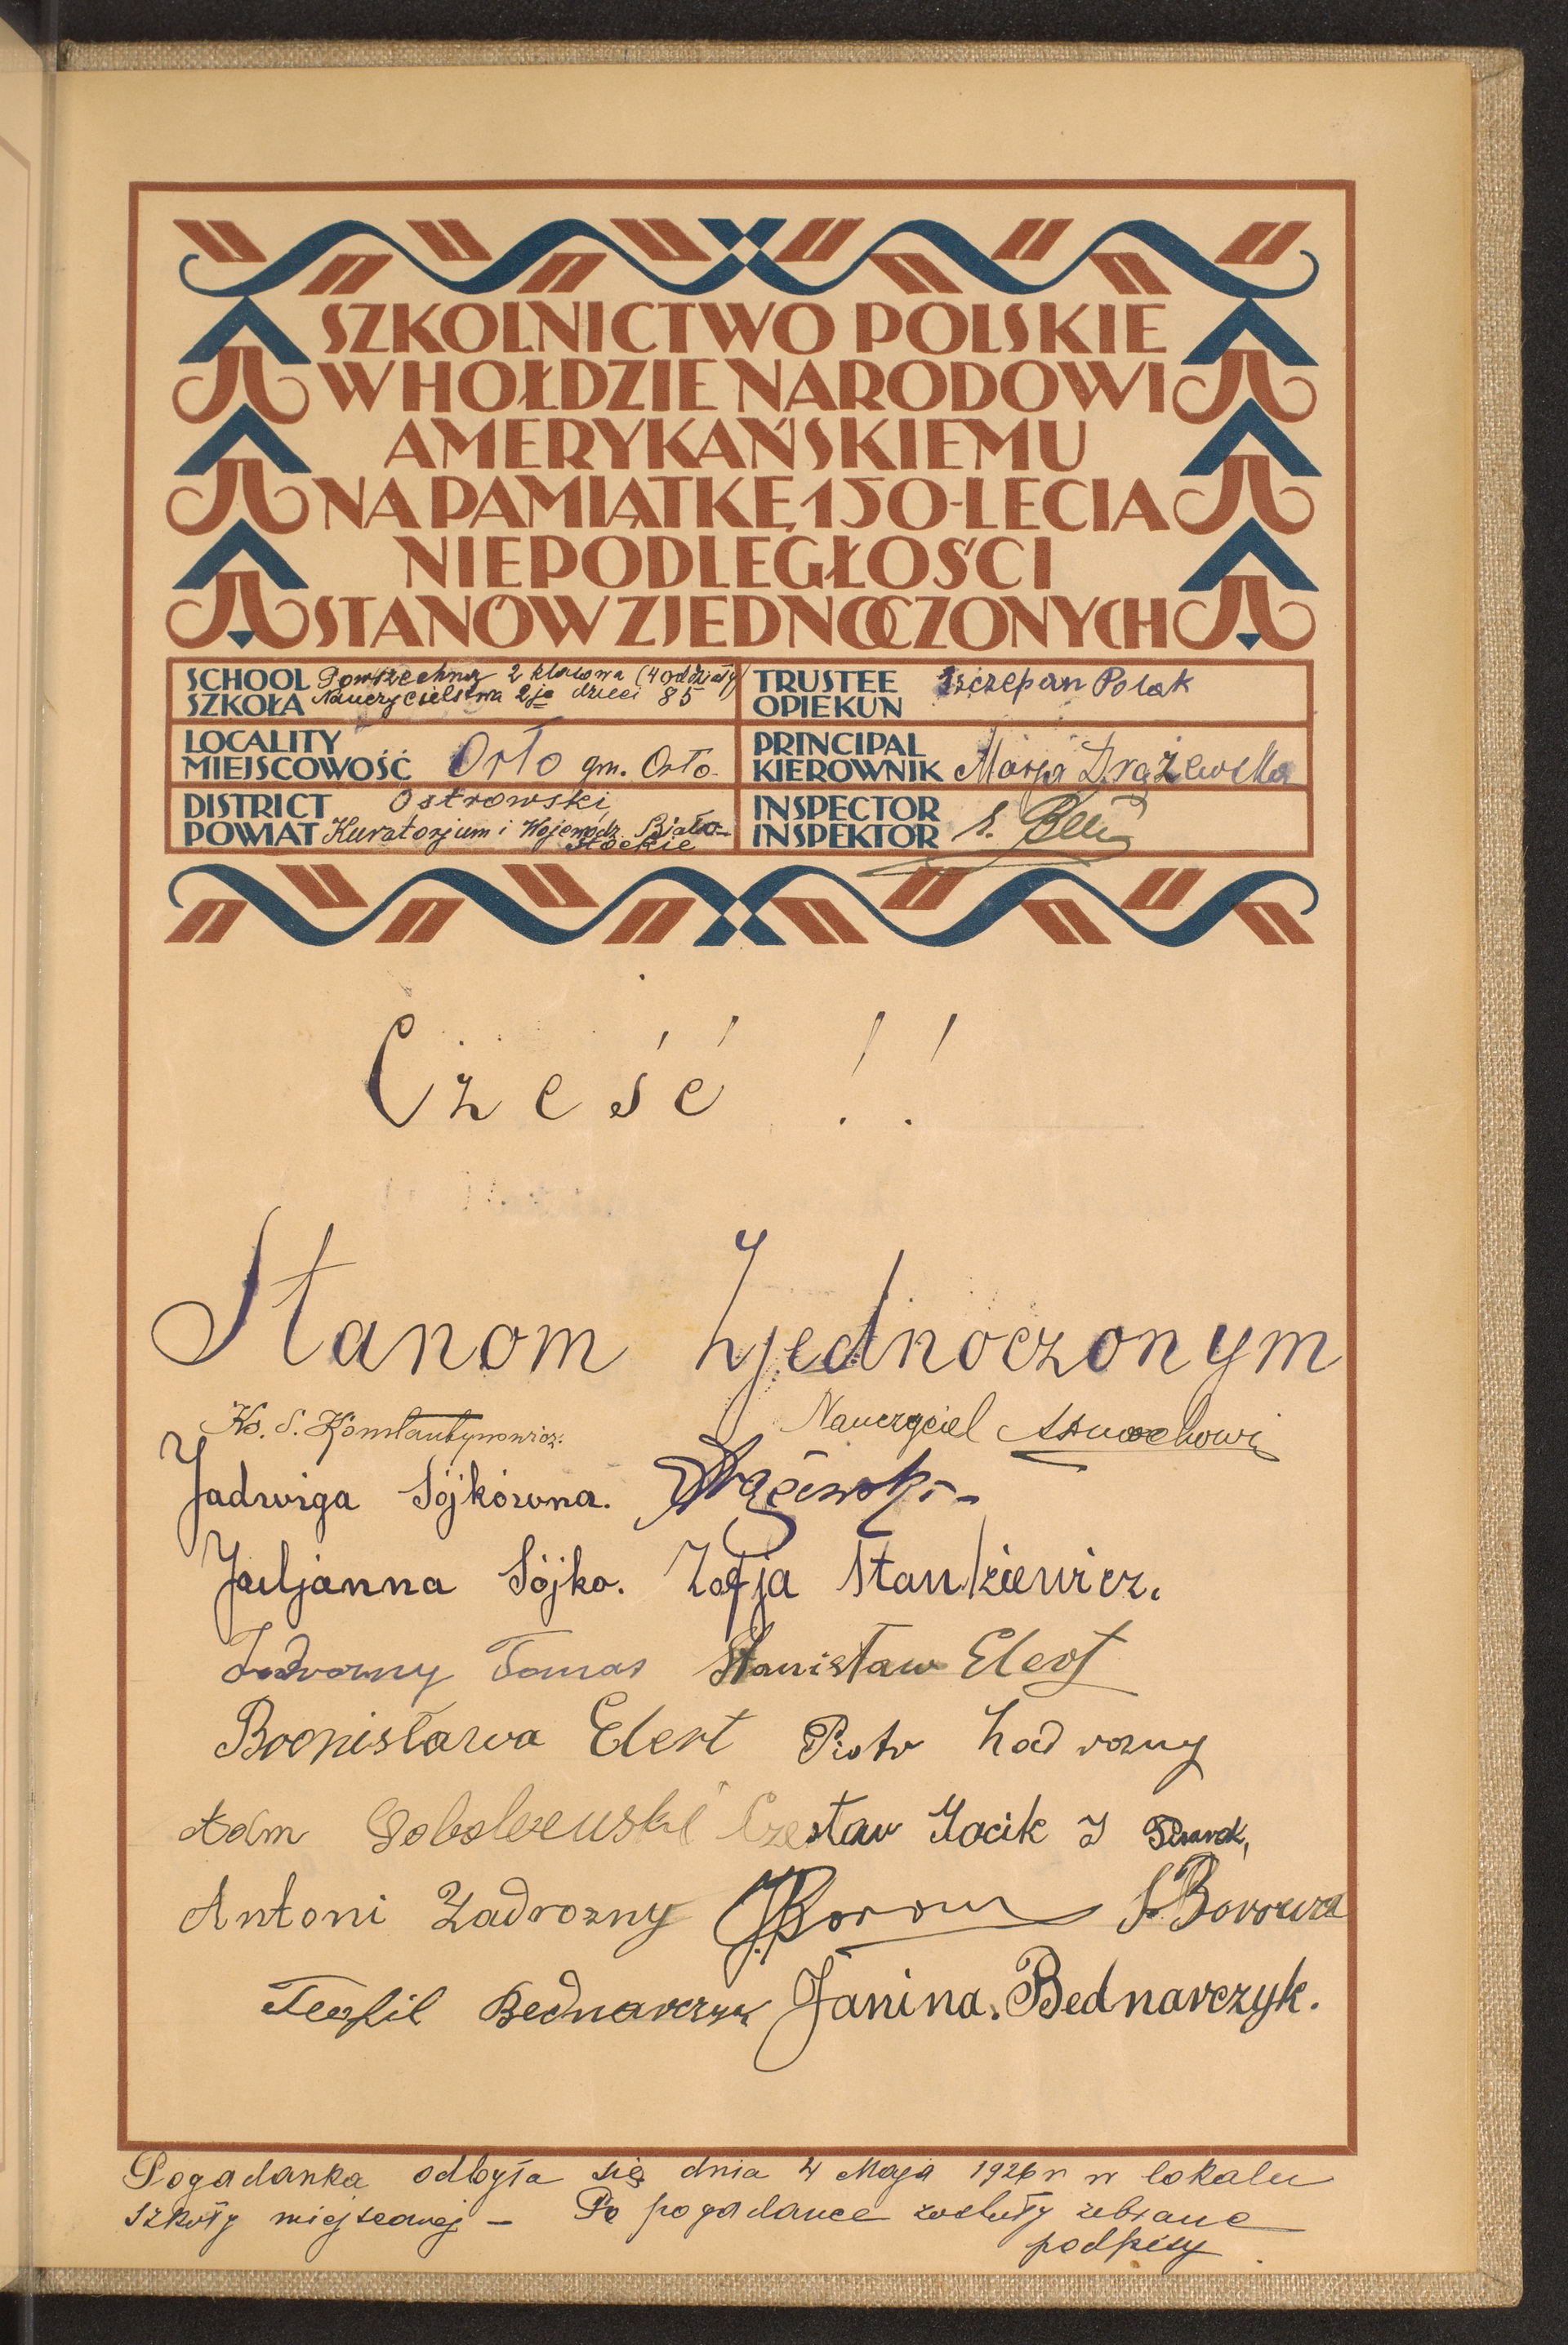 SZKOLNICTWO POLSKIE
W HOŁDZIE NARODOWI
AMERYKAŃSKIEMU
NA PAMIĄTKĘ 150-LECIA
NIEPODLEGŁOŚCI
STANÓW ZJEDNOCZONYCH
SCHOOL SZKOŁA Powszechna 2 klasowa (4 oddziały)
Nauczycielstwa 2je dzieci 85
TRUSTEE OPIEKUN Szczepan Polak
LOCALITY MIEJSCOWOŚĆ Orło gm. Orło
PRINCIPAL KIEROWNIK Marja Drążewska
DISTRICT POWIAT Ostrowski
Kuratorjum i Wojewódz. Białostockie
INSPECTOR INSPEKTOR S.
Cześć!!
Stanom Zjednoczonym
Ks. S. Konstantynowicz. Nauczyciel
Jadwiga Sójkówna. Drążewski
Juljanna Sójko. Zofja Stankiewicz.
Zadrozny Tomas Stanisław Elert
Bronisława Elert Piotr Zadrozny
Adm Czesław Jacik J
Antoni Zadrozny
Teofil Bednarczyk Janina. Bednarczyk.
Pogadanka odbyła się dnia 4 Maja 1926 r w lokalu
szkoły miejscowej – Po pogadance zostały zebrane
podpisy